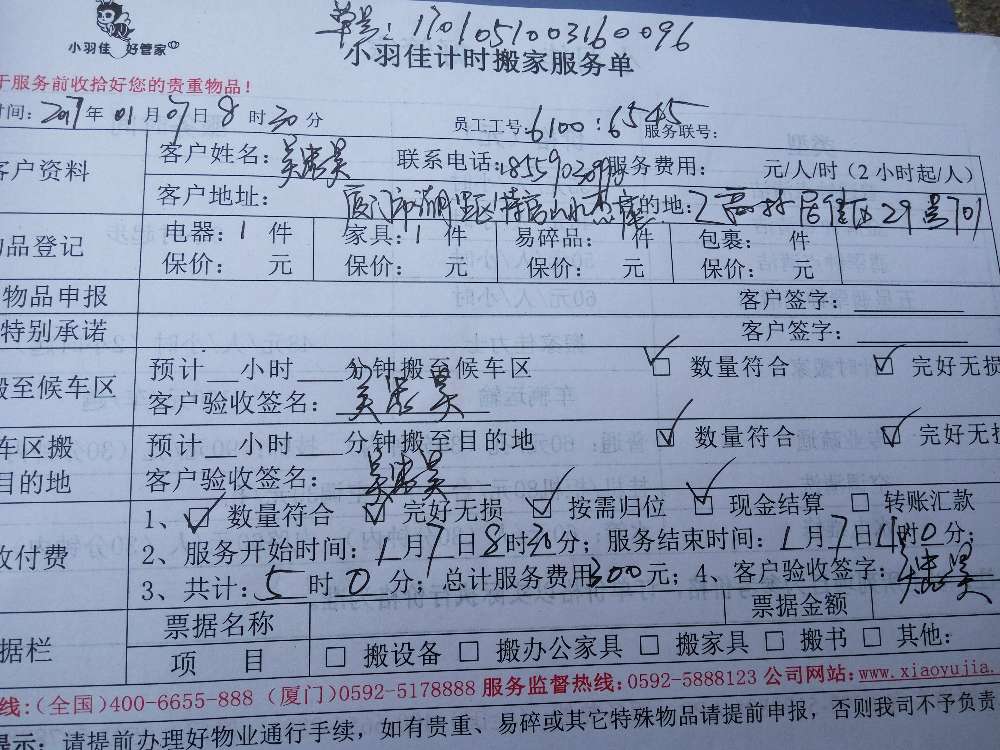 小羽佳 好管家
单号：17010510031600096
小羽佳计时搬家服务单
于服务前收拾好您的贵重物品！
时间：2017年01月07日8时30分 员工工号：6100：6545 服务联号：
客户资料 客户姓名： 联系电话： 服务费用： 元/人/时（2小时起/人）
客户地址：厦门市湖里区 目的地： 高林居住区29号701
物品登记 电器：1件 家具：1件 易碎品： 件 包裹： 件
保价： 元 保价： 元 保价： 元 保价： 元
物品申报 客户签字：
特别承诺 客户签字：
搬至候车区 预计__小时___分钟搬至候车区 ☑ 数量符合 ☑ 完好无损
客户验收签名：
车区搬 预计__小时___分钟搬至目的地 ☑ 数量符合 ☑ 完好无损
目的地 客户验收签名：
收付费 1、☑ 数量符合 ☑ 完好无损 ☑ 按需归位 ☑ 现金结算 □ 转账汇款
2、服务开始时间：1月7日8时30分；服务结束时间：1月7日11时0分；
3、共计：5时0分；总计服务费用300元；4、客户验收签字：
票据名称 票据金额
据栏 项 目 □ 搬设备 □ 搬办公家具 □ 搬家具 □ 搬书 □ 其他：
线：（全国）400-6655-888（厦门）0592-5178888 服务监督热线：0592-5888123 公司网站：www.xiaoyujia.
提示：请提前办理好物业通行手续，如有贵重、易碎或其它特殊物品请提前申报，否则我司不予负责